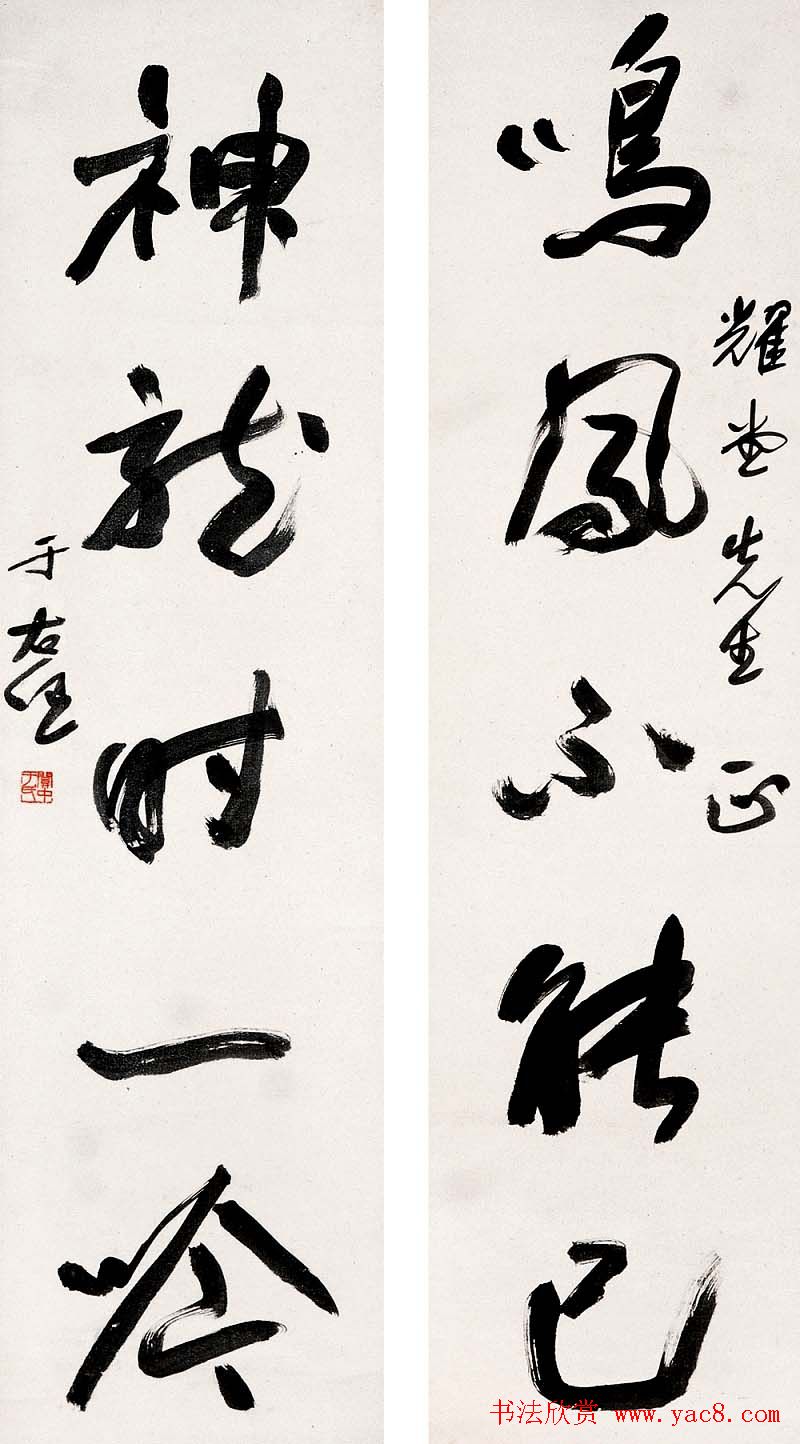 鳴鳳不能已
耀堂先生正
神龍时一吟
于右任
關中于氏
书法欣赏 www.yac8.com